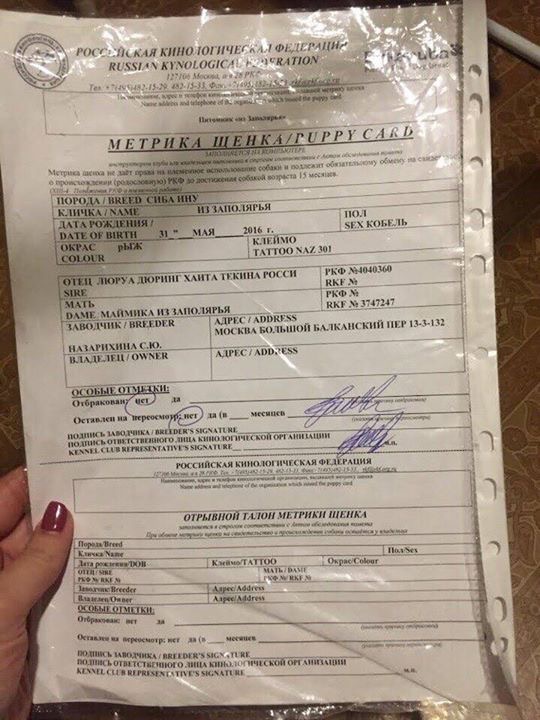 РОССИЙСКАЯ КИНОЛОГИЧЕСКАЯ ФЕДЕРАЦИЯ
RUSSIAN KYNOLOGICAL FEDERATION
127106 Москва, а-я 28 РКФ
Тел. +7(495)482-15-29, 482-15-33, Факс: +7(495)482-15-
Наименование, адрес и телефон кинологической организации, выдавшей метрику щенка
Name address and telephone of the organization which issued the puppy card
Питомник из Заполярья
МЕТРИКА ЩЕНКА/PUPPY CARD
ЗАПОЛНЯЕТСЯ НА КОМПЬЮТЕРЕ
инструктором клуба или владельцем питомника в строгом соответствии с Актом обследования помета
Метрика щенка не даёт права на племенное использование собаки и подлежит обязательному обмену на свидетель
о происхождении (родословную) РКФ до достижения собакой возраста 15 месяцев.
ПОРОДА / BREED СИБА ИНУ
КЛИЧКА / NAME ИЗ ЗАПОЛЯРЬЯ
ПОЛ
ДАТА РОЖДЕНИЯ /
SEX КОБЕЛЬ
DATE OF BIRTH 31 " МАЯ 2016 г.
ОКРАС рЫЖ
КЛЕЙМО
COLOUR
TATTOO NAZ 301
ОТЕЦ ЛЮРУА ДЮРИНГ ХАИТА ТЕКИНА РОССИ
РКФ №4040360
SIRE
RKF №
МАТЬ
РКФ №
DAME: МАЙМИКА ИЗ ЗАПОЛЯРЬЯ
RKF № 3747247
ЗАВОДЧИК / BREEDER
АДРЕС / ADDRESS
МОСКВА БОЛЬШОЙ БАЛКАНСКИЙ ПЕР 13-3-132
НАЗАРИХИНА С.Ю.
ВЛАДЕЛЕЦ / OWNER
АДРЕС / ADDRESS
ОСОБЫЕ ОТМЕТКИ:
Отбракован: нет да
(указать причину отбраковки)
Оставлен на переосмотр: нет да (в ___ месяцев
ПОДПИСЬ ЗАВОДЧИКА / BREEDER'S SIGNATURE
ПОДПИСЬ ОТВЕТСТВЕННОГО ЛИЦА КИНОЛОГИЧЕСКОЙ ОРГАНИЗАЦИИ
KENNEL CLUB REPRESENTATIVE'S SIGNATURE м.п.
РОССИЙСКАЯ КИНОЛОГИЧЕСКАЯ ФЕДЕРАЦИЯ
Наименование, адрес и телефон кинологической организации, выдавшей метрику щенка
Name address and telephone of the organization which issued the puppy card
ОТРЫВНОЙ ТАЛОН МЕТРИКИ ЩЕНКА
заполняется в строгом соответствии с Актом обследования помета
При обмене метрики щенка на свидетельство о происхождении остаётся у владельца
Порода/Breed
Кличка/Name
Пол/Sex
Дата рождения/DOB
Клеймо/TATTOO
Окрас/Colour
ОТЕЦ / SIRE
МАТЬ / DAME
РКФ №/ RKF №
РКФ №/ RKF №
Заводчик/Breeder
Адрес/Address
Владелец/Owner
Адрес/Address
ОСОБЫЕ ОТМЕТКИ:
Отбракован: нет да
(указать причину отбраковки)
Оставлен на переосмотр: нет да (в ___ месяцев
ПОДПИСЬ ЗАВОДЧИКА / BREEDER'S SIGNATURE
ПОДПИСЬ ОТВЕТСТВЕННОГО ЛИЦА КИНОЛОГИЧЕСКОЙ ОРГАНИЗАЦИИ
KENNEL CLUB REPRESENTATIVE'S SIGNATURE м.п.